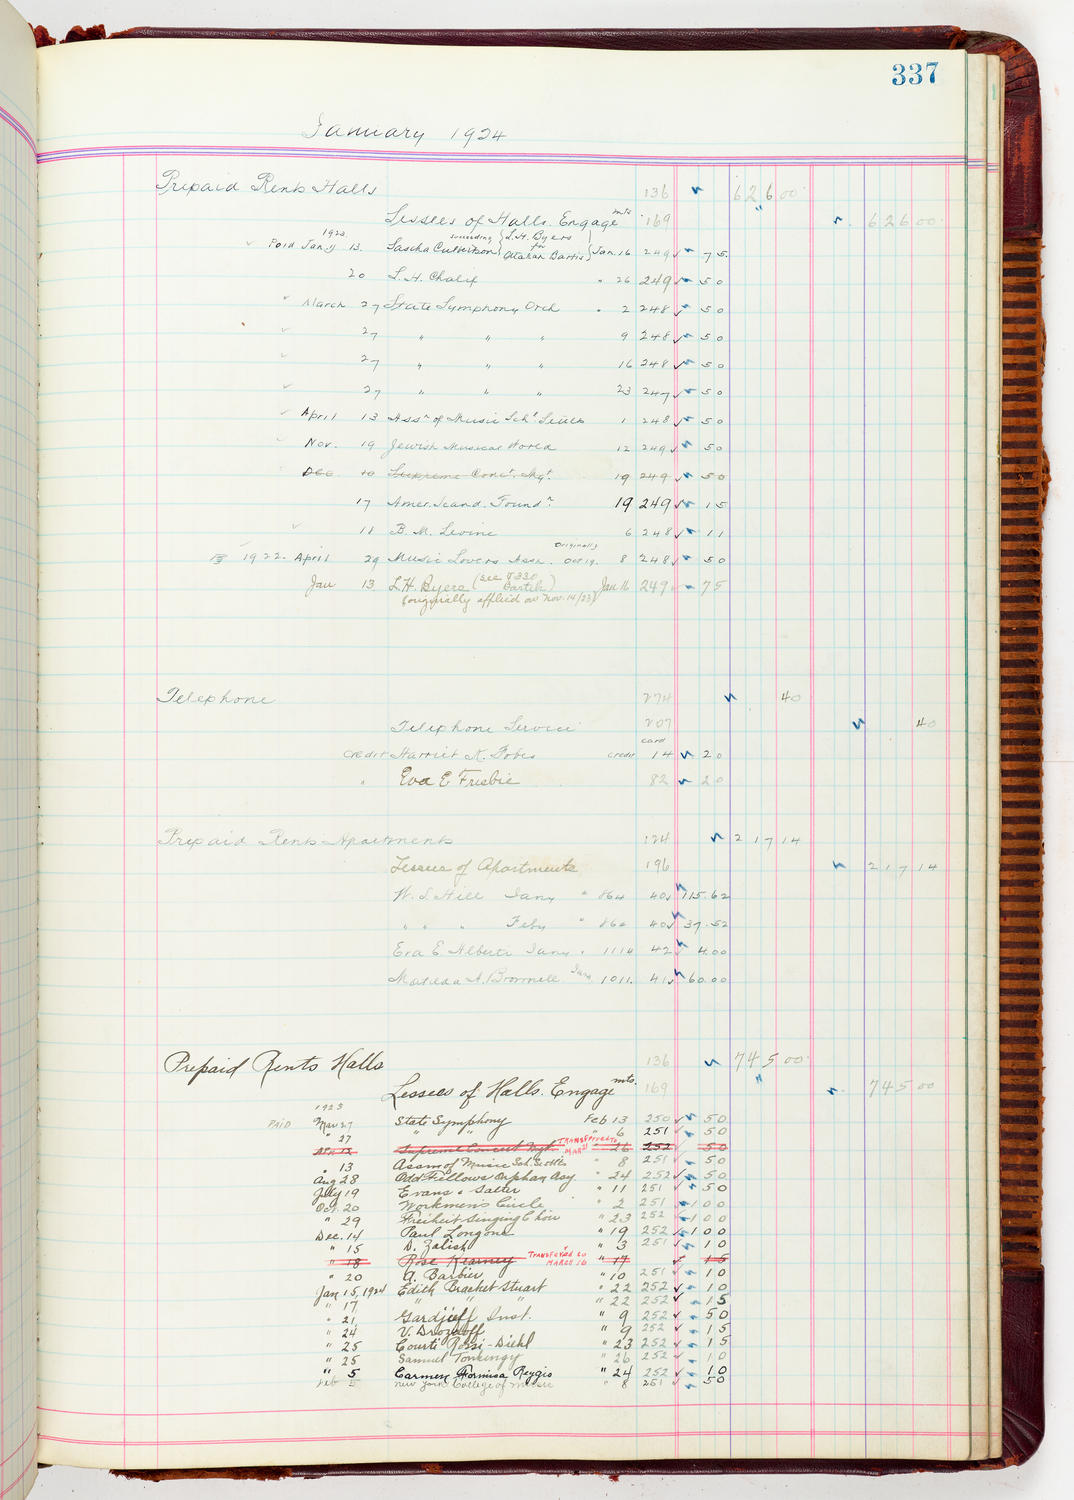 337
January 1924
Prepaid Rents Halls 136 626 00
Lessees of Halls. Engagemts 169 626 00
1923
Paid Jany 13. Sascha Culbertson succeeding { L. H. Byers for Otakar Bartik } Jan. 16 249 75.
20 L. H. Chalif " 26 249 50
" March 27 State Symphony Orch " 2 248 50
27 " " " 9 248 50
27 " " " 16 248 50
27 " " " 23 247 50
April 13 Assn of Music Schl Settle 1 248 50
Nov. 19 Jewish Musical World 12 249 50
Dec 10 Supreme Conct. Mgt. 19 249 50
17 Amer. Scand. Foundn. 19 249 15
18 B. M. Levine 6 248 11
1922. April 29 Music Lovers Assn. Originally Oct 19. 8 248 50
Jan 13 L.H. Byers (see P 330 Bartik) Jan 16 249 75
(originally applied on Nov. 14/23)
Telephone 274 40
Telephone Service 207 40
card
credit Harriet K. Fobes credit 14 20
" Eva E Frisbie 82 20
Prepaid Rents Apartments 124 217 14
Lessees of Apartments 196 217 14
W. S. Hill Jany " 864 40 115.62
" " " Feby " 864 40 37.52
Eva E Alberti Jany " 1114 42 4.00
Matilda A. Brownell Jany 1011. 41 60.00
Prepaid Rents Halls 136 745 00
Lessees of Halls. Engagemts. 169 745 00
1923
PAID Mar 27 State Symphony Feb 13 250 50
" 27 " " " 6 251 50
Apr 12 Supreme Concert Mgt. TRANSFERRED TO MAR " 26 252 50
" 13 Assn of Music Sch. Settle " 8 251 50
Aug 28 Odd Fellows Orphan Asy. " 24 252 50
July 19 Evans & Salter " 11 251 50
Oct. 20 Workmen's Circle " 2 251 100
" 29 Freiheit Singing Choir " 23 252 100
Dec. 14 Paul Longone " 19 252 100
" 15 D. Zalish " 3 251 10
" 18 Rose Kearney TRANSFERED TO MARCH 16 " 17 15
" 20 A. Barbier " 10 251 10
Jan 15, 1924 Edith Bracket Stuart " 22 252 10
" 17 " " " " 22 252 15
" 21 Gardjieff Inst. " 9 252 50
" 24 V. Drozdoff " 9 252 15
" 25 Courti Rossi-Diehl " 23 252 15
" 25 Samuel " 26 252 10
" 5 Carmen Formisa Reggio " 24 252 10
Feb 5 New York College of Music " 8 251 50